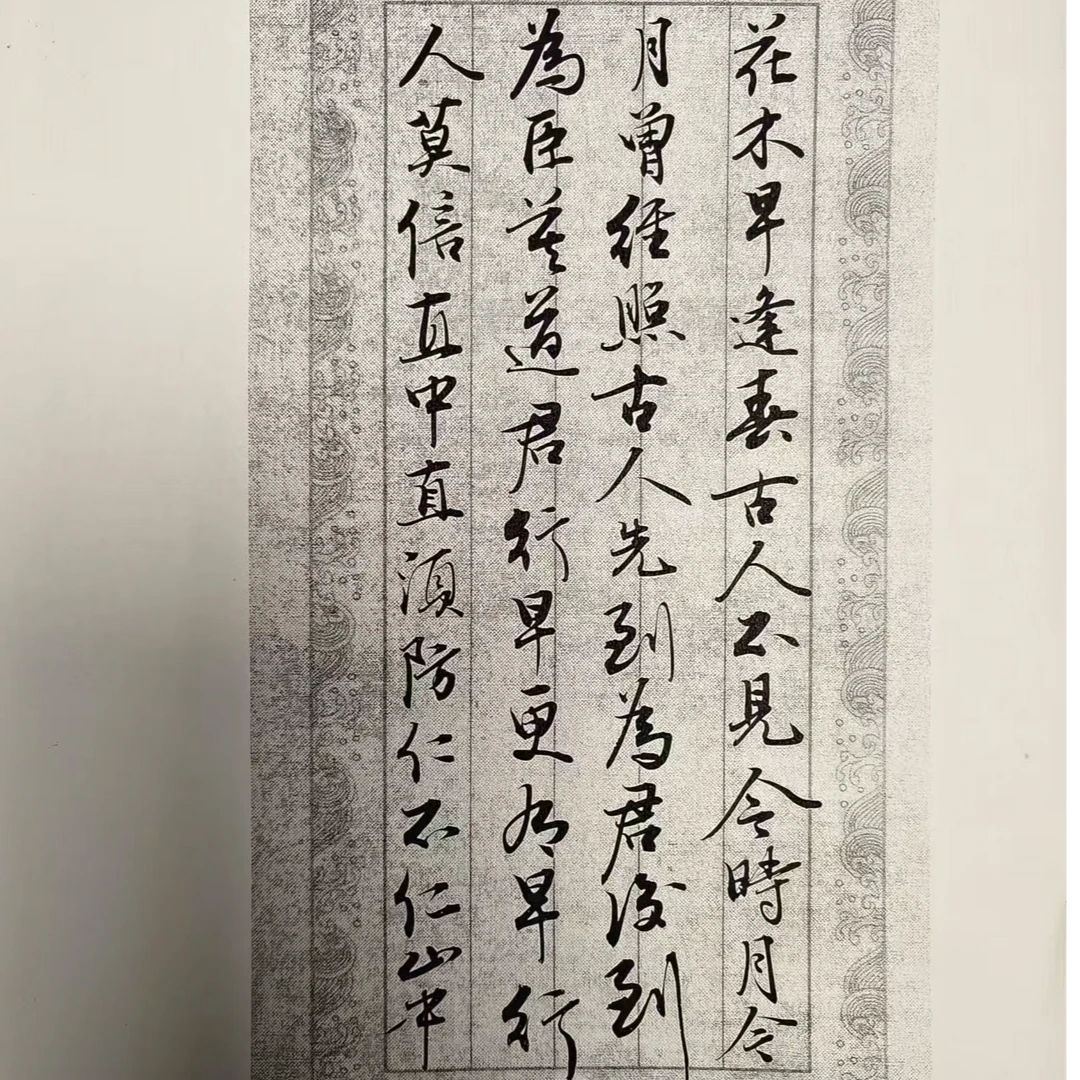 花木早逢春古人不見今時月今
月曾經照古人先到為君後到
為臣莫道君行早更有早行
人莫信直中直須防仁不仁山中